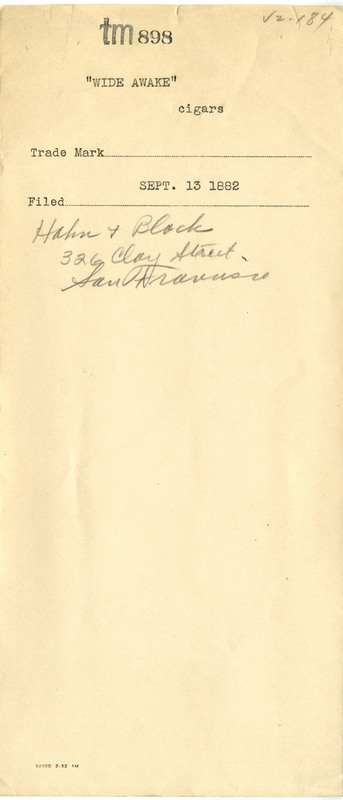 V2-184
tm 898
"WIDE AWAKE"
cigars
Trade Mark
SEPT. 13 1882
Filed
Hahn + Block
326 Clay Street.
San Francisco
92950 2-32 1M